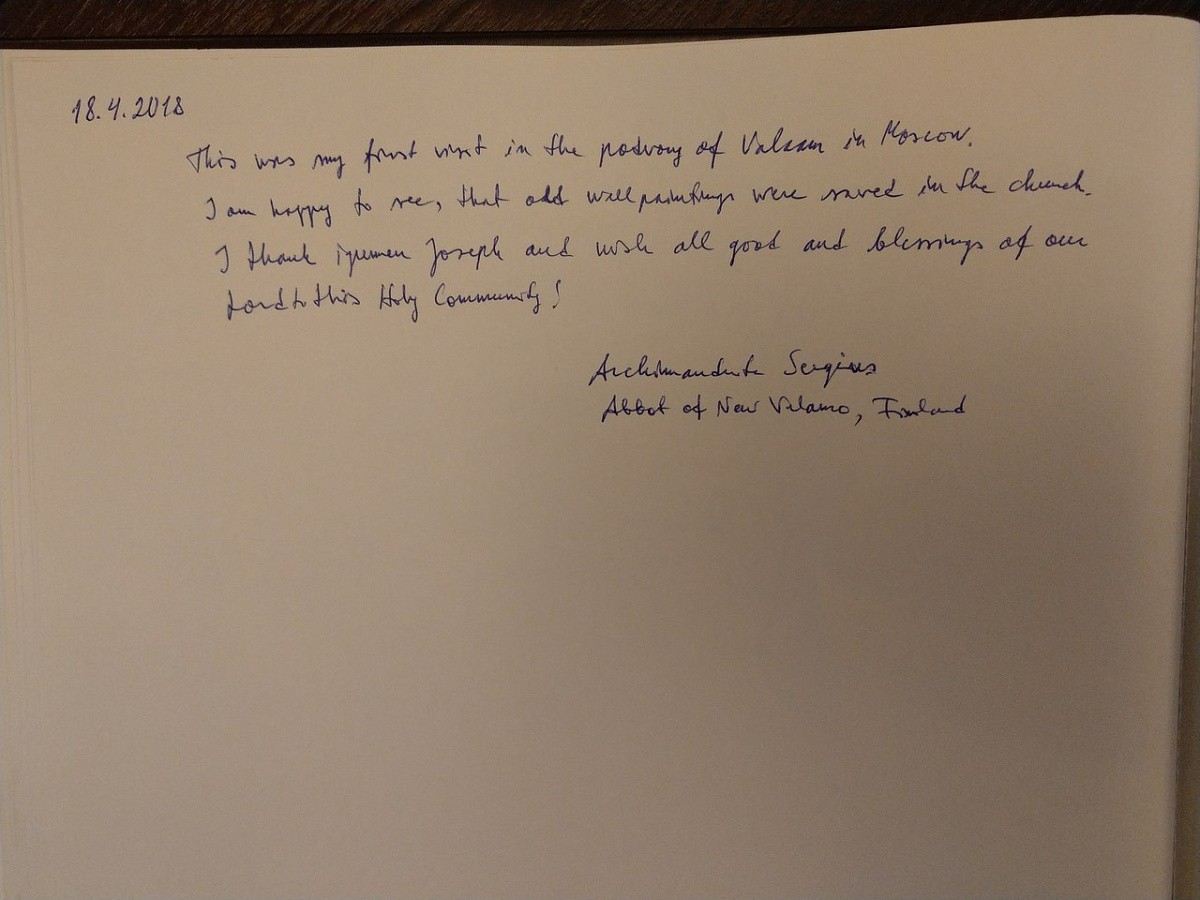 18.4.2018
This was my first visit in the podvorj of Valaam in Moscow.
I am happy to see, that old wallpaintings were saved in the church.
I thank igumen Joseph and wish all good and blessings of our
Lord to this Holy Community!
Archimandrite Sergius
Abbot of New Valamo, Finland